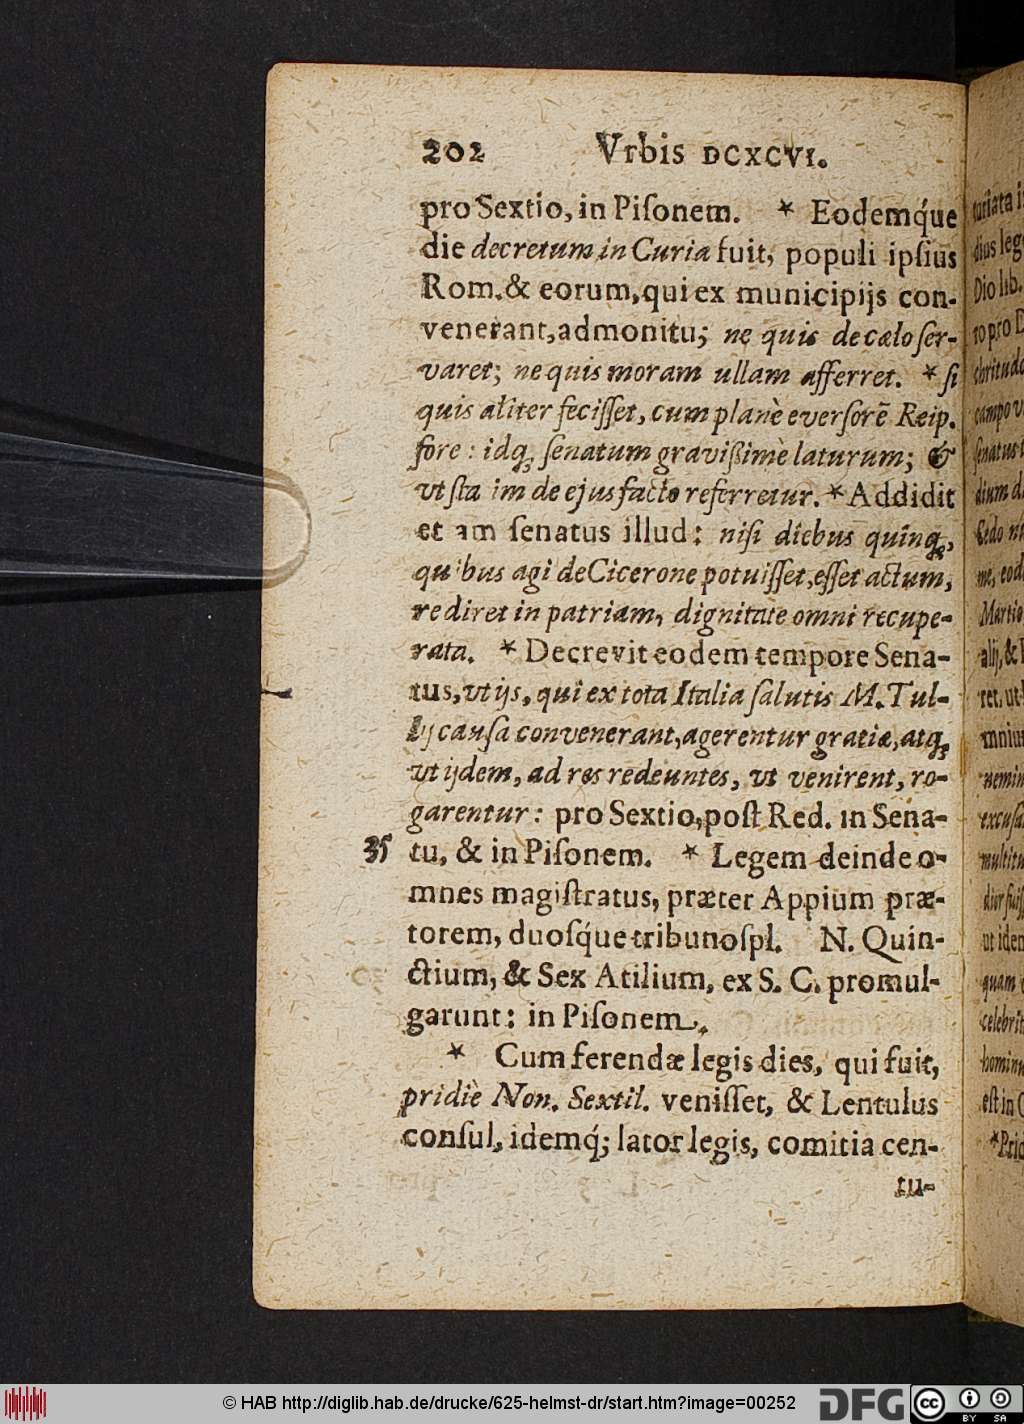 202 Vrbis DCXCVI.
pro Sextio, in Piſonem. * Eodemq́ue
die decretum in Curia fuit, populi ipſius
Rom. & eorum, qui ex municipijs con-
venerant, admonitu; ne quis de cælo ſer-
varet; ne quis moram ullam afferret. * ſi
quis aliter feciſſet, cum planè everſorē Reip.
fore: idq; ſenatum gravißimè laturum; &
ut ſta im de ejus facto referretur. * Addidit
et am ſenatus illud: niſi diebus quinq;,
quibus agi de Cicerone potuiſſet, eſſet actum,
rediret in patriam, dignitate omni recupe-
rata. * Decrevit eodem tempore Sena-
tus, ut ijs, qui ex tota Italia ſalutis M. Tul-
lij cauſa convenerant, agerentur gratiæ, atq;
ut ijdem, ad res redeuntes, ut venirent, ro-
garentur: pro Sextio, poſt Red. in Sena-
35 tu, & in Piſonem. * Legem deinde o-
mnes magiſtratus, præter Appium præ-
torem, duoſq́ue tribunoſpl. N. Quin-
ctium, & Sex Atilium, ex S. C. promul-
garunt: in Piſonem.
* Cum ferendæ legis dies, qui fuit,
pridiè Non. Sextil. veniſſet, & Lentulus
conſul, idemq́; lator legis, comitia cen-
tu-
tariata i
dius leg
Dio lib.
to pro D
campo v
ſenatus
dium d
Cedo n
me, eod
Martio
alij, &
ret, ut
mniu
nemin
excuſa
multitu
ut iden
quam
celebrit
homin
eſt in C
*Prid
© HAB http://diglib.hab.de/drucke/625-helmst-dr/start.htm?image=00252
DFG
cc
BY SA